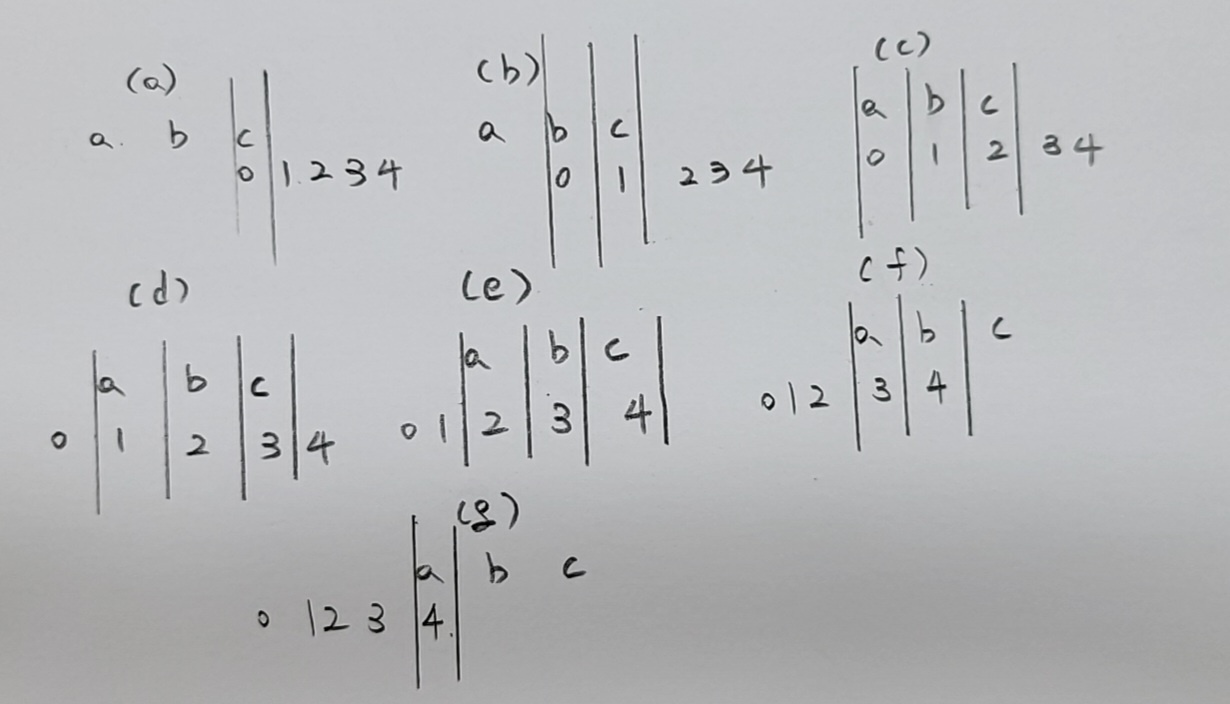 (a) (b) (c)
a. b c a b c a b c
0 1. 2 3 4 0 1 2 3 4 0 1 2 3 4
(d) (e) (f)
a b c a b c a b c
0 1 2 3 4 0 1 2 3 4 0 1 2 3 4
(g)
a b c
0 1 2 3 4.